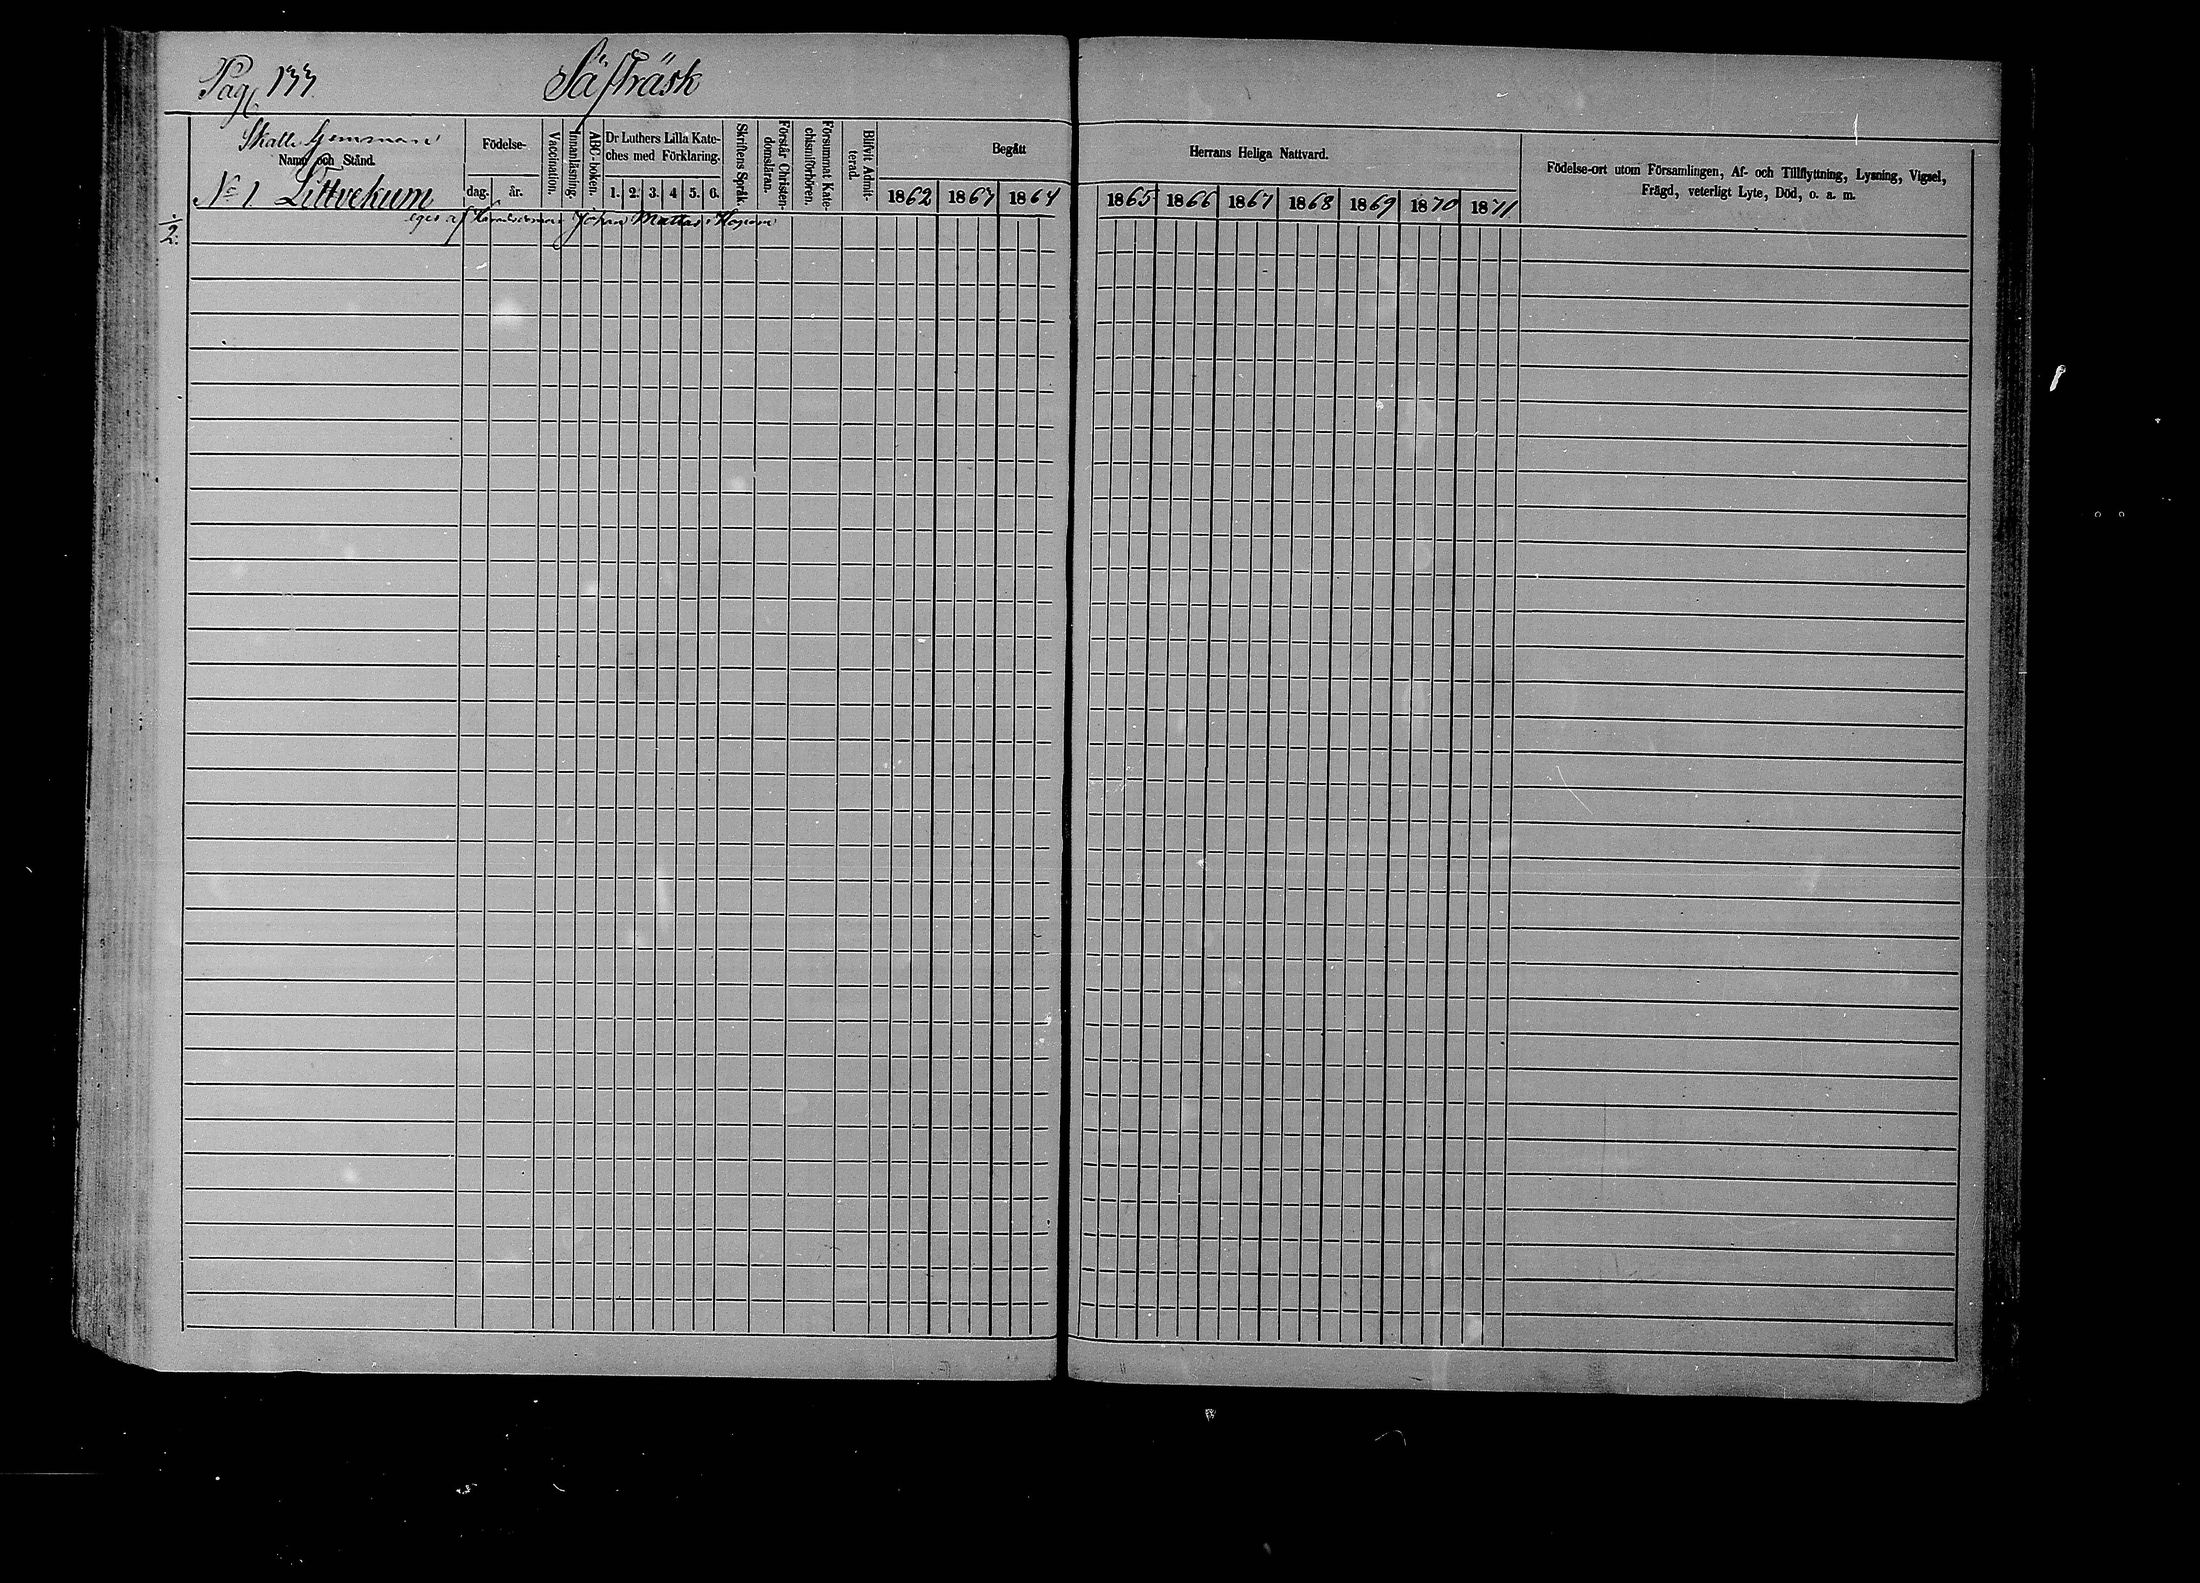 Pag. 133. Säfträsk
Skatte hemman
Namn och Stånd.
No 1 Littvekum
Födelse-
dag. år.
Vaccination.
Innanläsning.
ABC-boken.
Dr Luthers Lilla Kate-
ches med Förklaring.
1. 2. 3. 4 5. 6.
Skriftens Språk.
Förstår Christen-
domsläran.
Försummat Kate-
chismiförhören.
Blifvit Admit-
terad.
Begått
1862 1863 1864
Herrans Heliga Nattvard.
1865 1866 1867 1868 1869 1870 1871
Födelse-ort utom Församlingen, Af- och Tillflyttning, Lysning, Vigsel,
Frägd, veterligt Lyte, Död, o. a. m.
1/2. eges af Johan Mattas i